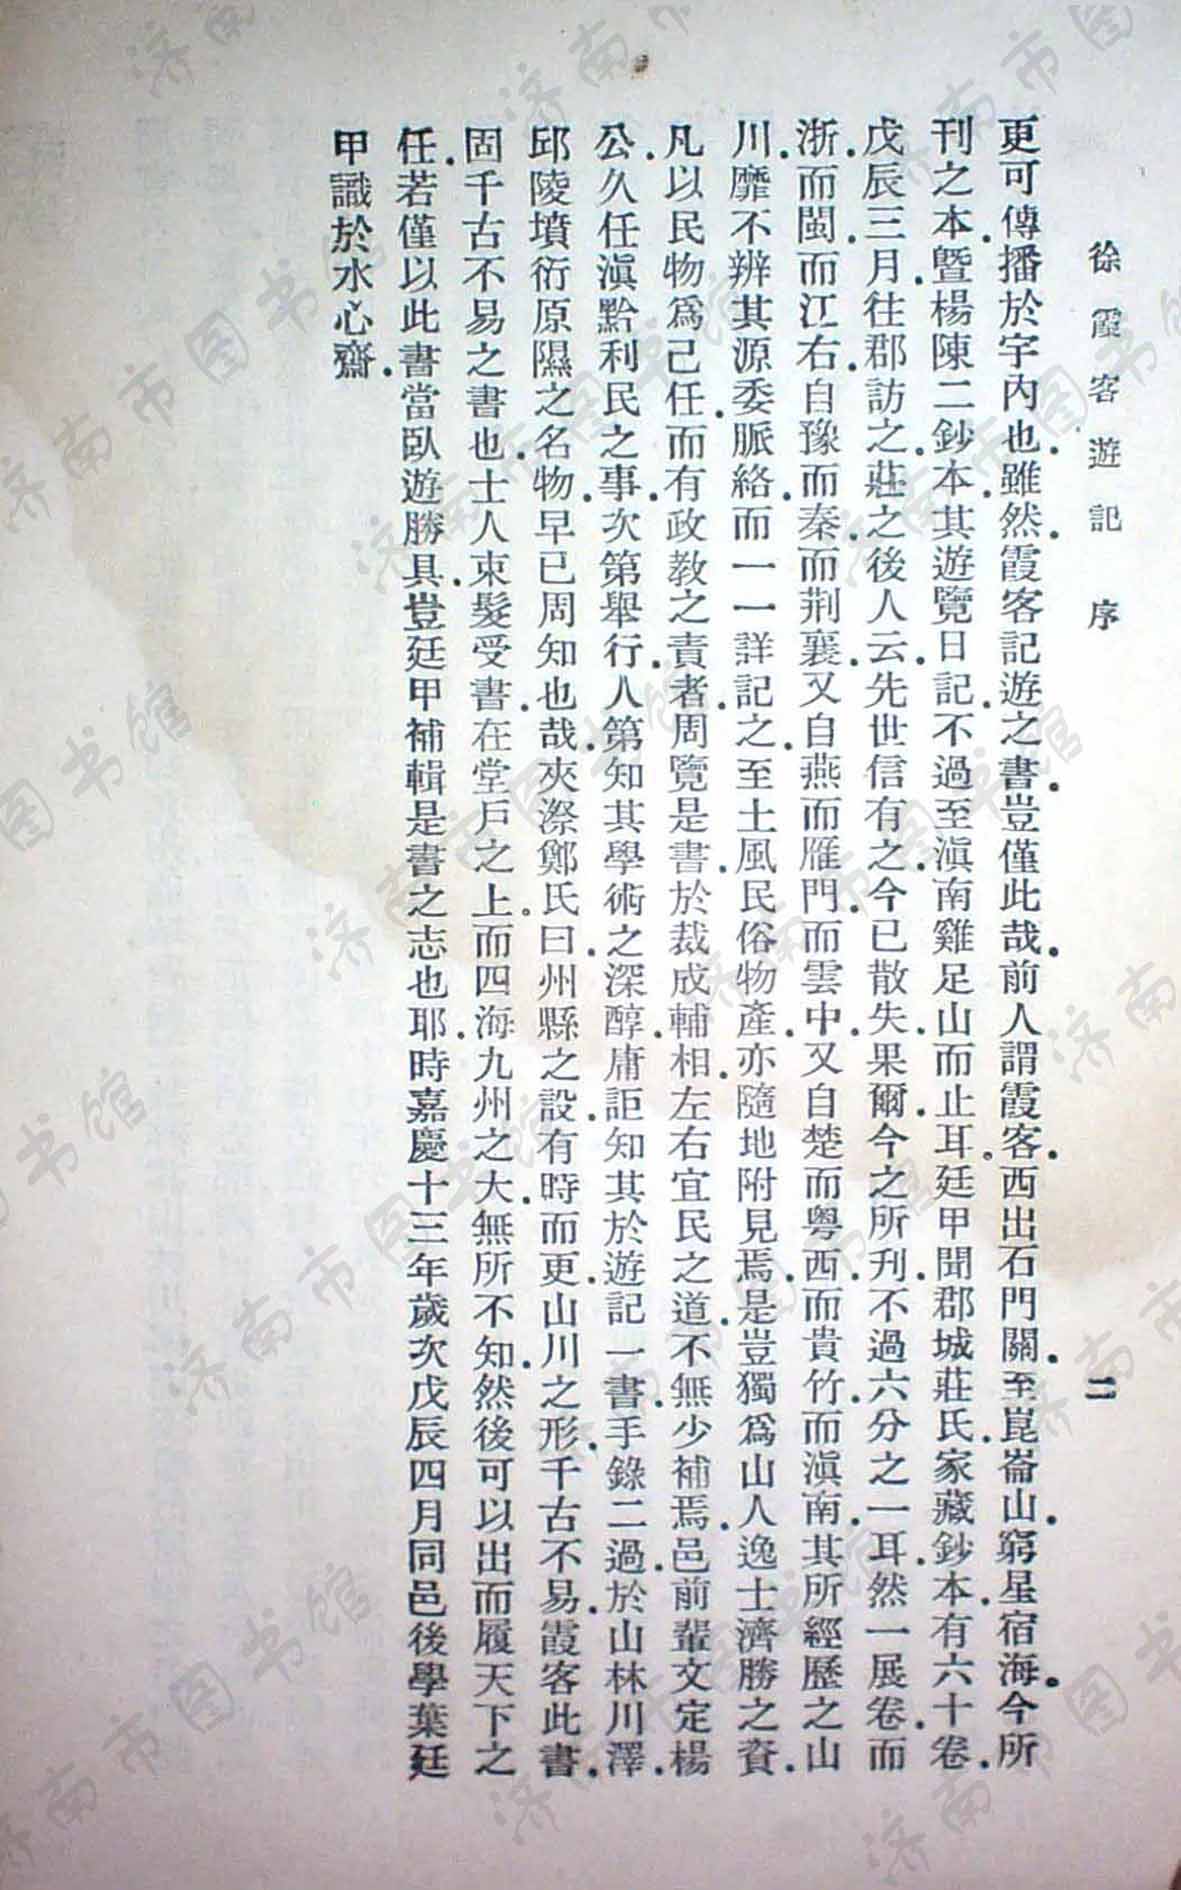 徐霞客遊記 序 二
更可傳播於宇內也雖然霞客記遊之書豈僅此哉前人謂霞客西出石門關至崑崙山窮星宿海今所
刊之本曁楊陳二鈔本其遊覽日記不過至滇南雞足山而止耳廷甲聞郡城莊氏家藏鈔本有六十卷
戊辰三月往郡訪之莊之後人云先世信有之今已散失果爾今之所刊不過六分之一耳然一展卷而
浙而閩而江右自豫而秦而荆襄又自燕而雁門而雲中又自楚而粵西而貴竹而滇南其所經歷之山
川靡不辨其源委脈絡而一一詳記之至土風民俗物產亦隨地附見焉是豈獨爲山人逸士濟勝之資
凡以民物爲己任而有政教之責者周覽是書於裁成輔相左右宜民之道不無少補焉邑前輩文定楊
公久任滇黔利民之事次第舉行人第知其學術之深醇庸詎知其於遊記一書手錄二過於山林川澤
邱陵墳衍原隰之名物早已周知也哉夾漈鄭氏曰州縣之設有時而更山川之形千古不易霞客此書
固千古不易之書也士人束髮受書在堂戶之上而四海九州之大無所不知然後可以出而履天下之
任若僅以此書當臥遊勝具豈廷甲補輯是書之志也耶時嘉慶十三年歲次戊辰四月同邑後學葉廷
甲識於水心齋
济南市图书馆